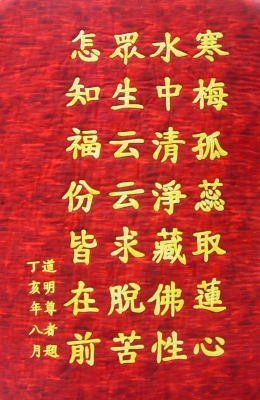 寒梅孤蕊取蓮心
水中清淨藏佛性
眾生云云求脫苦
怎知福份皆在前
道明尊者題
丁亥年八月